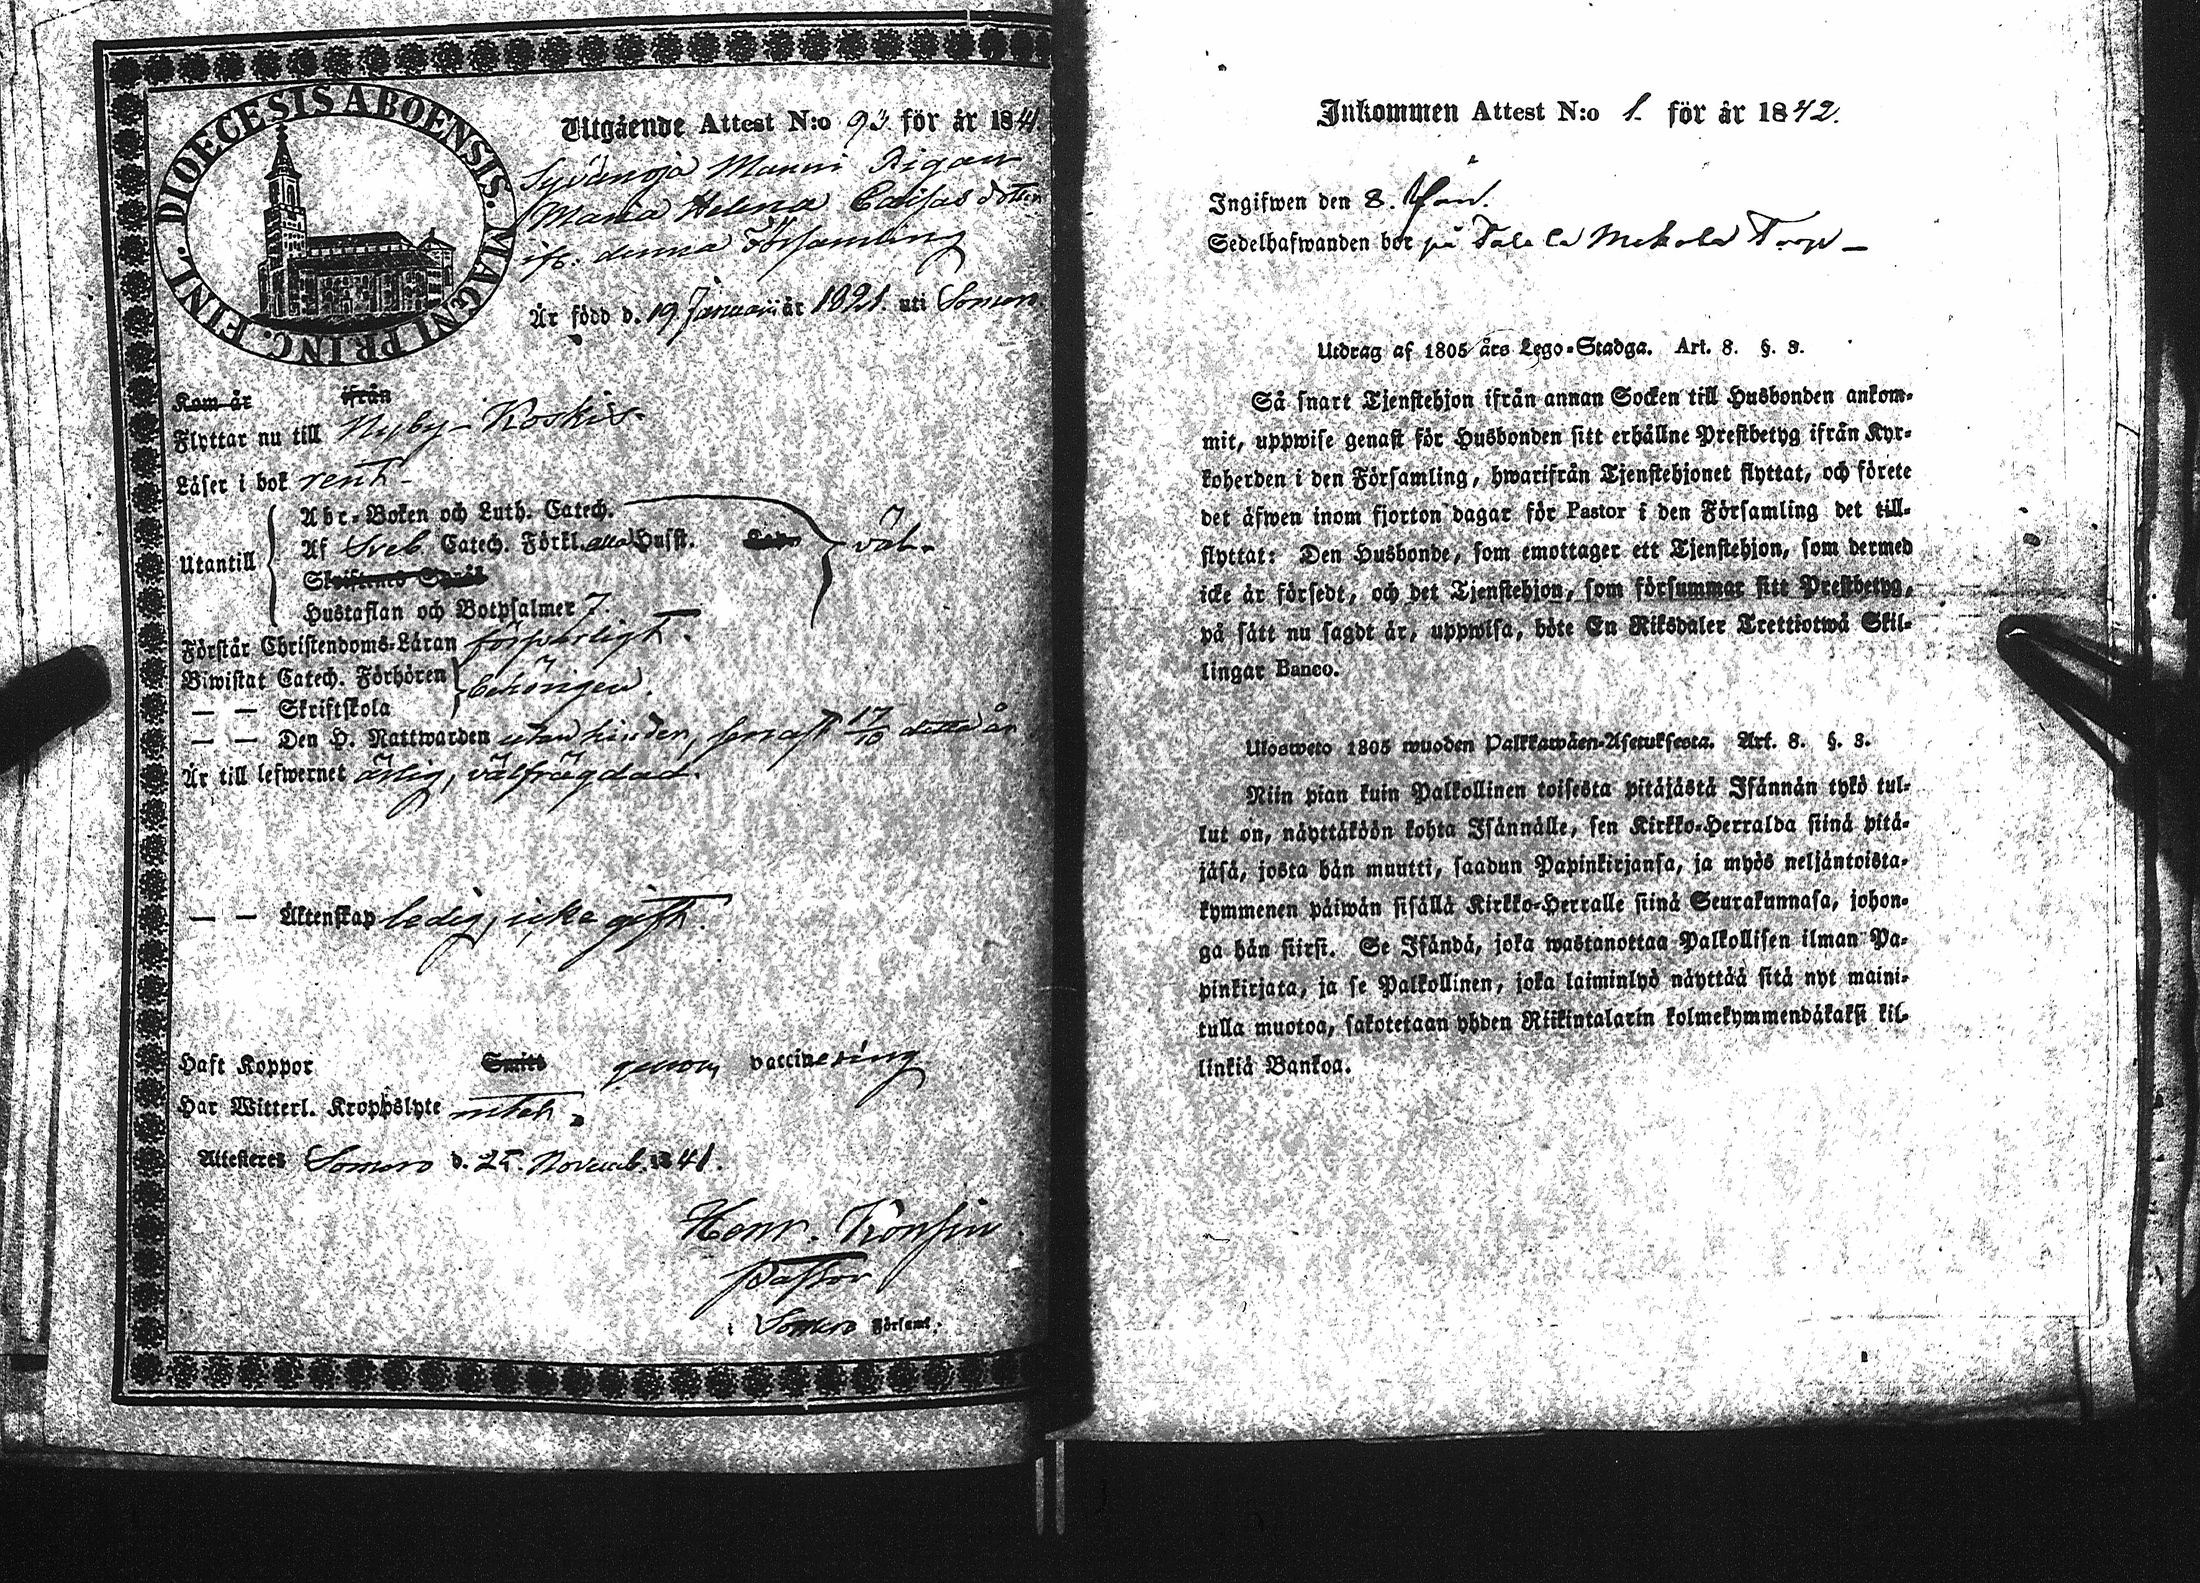 DIOECESIS ABOENSIS. MAGNI PRINC. FINL.
Utgående Attest N:o 93 för år 1841.
Syvänoja Manni Pigan
Maria Helena Caisas dotter
ifr. denna Församling
Är född d. 19 Januarii år 1821. uti Somero
Kom år ifrån
Flyttar nu till Nyby-Koskis.
Läser i bok rent
Utantill
Abc-Boken och Luth. Catech.
Af Sveb. Catech. Förkl. alla Hufst. väl.
Hustaflan och Botpsalmer 7.
Förstår Christendoms-Läran försvarligt.
Biwistat Catech. Förhören behörigen.
— — Skriftskola
— — Den H. Nattwarden utan hinder, senast 17/10 detta år
Är till lefwernet ärlig, välfrägdad.
— — Äktenskap ledig, icke gift.
Haft Koppor Smitt genom vaccinering
Har Witterl. Kroppslyte utan.
Attesteres Somero d. 25 Novemb. 1841.
Henr.
Pastor
i Somero Församl.
Inkommen Attest N:o 1. för år 1842.
Ingifwen den 8. Jan.
Sedelhafwanden bor på Talala Torp
Utdrag af 1805 års Lego-Stadga. Art. 8. §. 8.
Så snart Tjenstehjon ifrån annan Socken till Husbonden ankom-
mit, uppwise genast för Husbonden sitt erhållne Prestbetyg ifrån Kyr-
koherden i den Församling, hwarifrån Tjenstehjonet flyttat, och förete
det äfwen inom fjorton dagar för Pastor i den Församling det till-
flyttat: Den Husbonde, som emottager ett Tjenstehjon, som dermed
icke är försedt, och det Tjenstehjon, som försummar sitt Prestbetyg,
på sätt nu sagdt är, uppwisa, böte En Riksdaler Trettiotwå Skil-
lingar Banco.
Ulosweto 1805 wuoden Palkkawäen-Asetuksesta. Art. 8. §. 8.
Niin pian kuin Palkollinen toisesta pitäjästä Isännän tykö tul-
lut on, näyttäköön kohta Isännälle, sen Kirkko-Herralda siinä pitä-
jäsä, josta hän muutti, saadun Papinkirjansa, ja myös neljäntoista-
kymmenen päiwän sisällä Kirkko-Herralle siinä Seurakunnasa, johon-
ga hän siirsi. Se Isändä, joka wastanottaa Palkollisen ilman Pa-
pinkirjata, ja se Palkollinen, joka laiminlyö näyttää sitä nyt maini-
tulla muotoa, sakotetaan yhden Riikintalarin kolmekymmendäkaksi kil-
linkiä Bankoa.